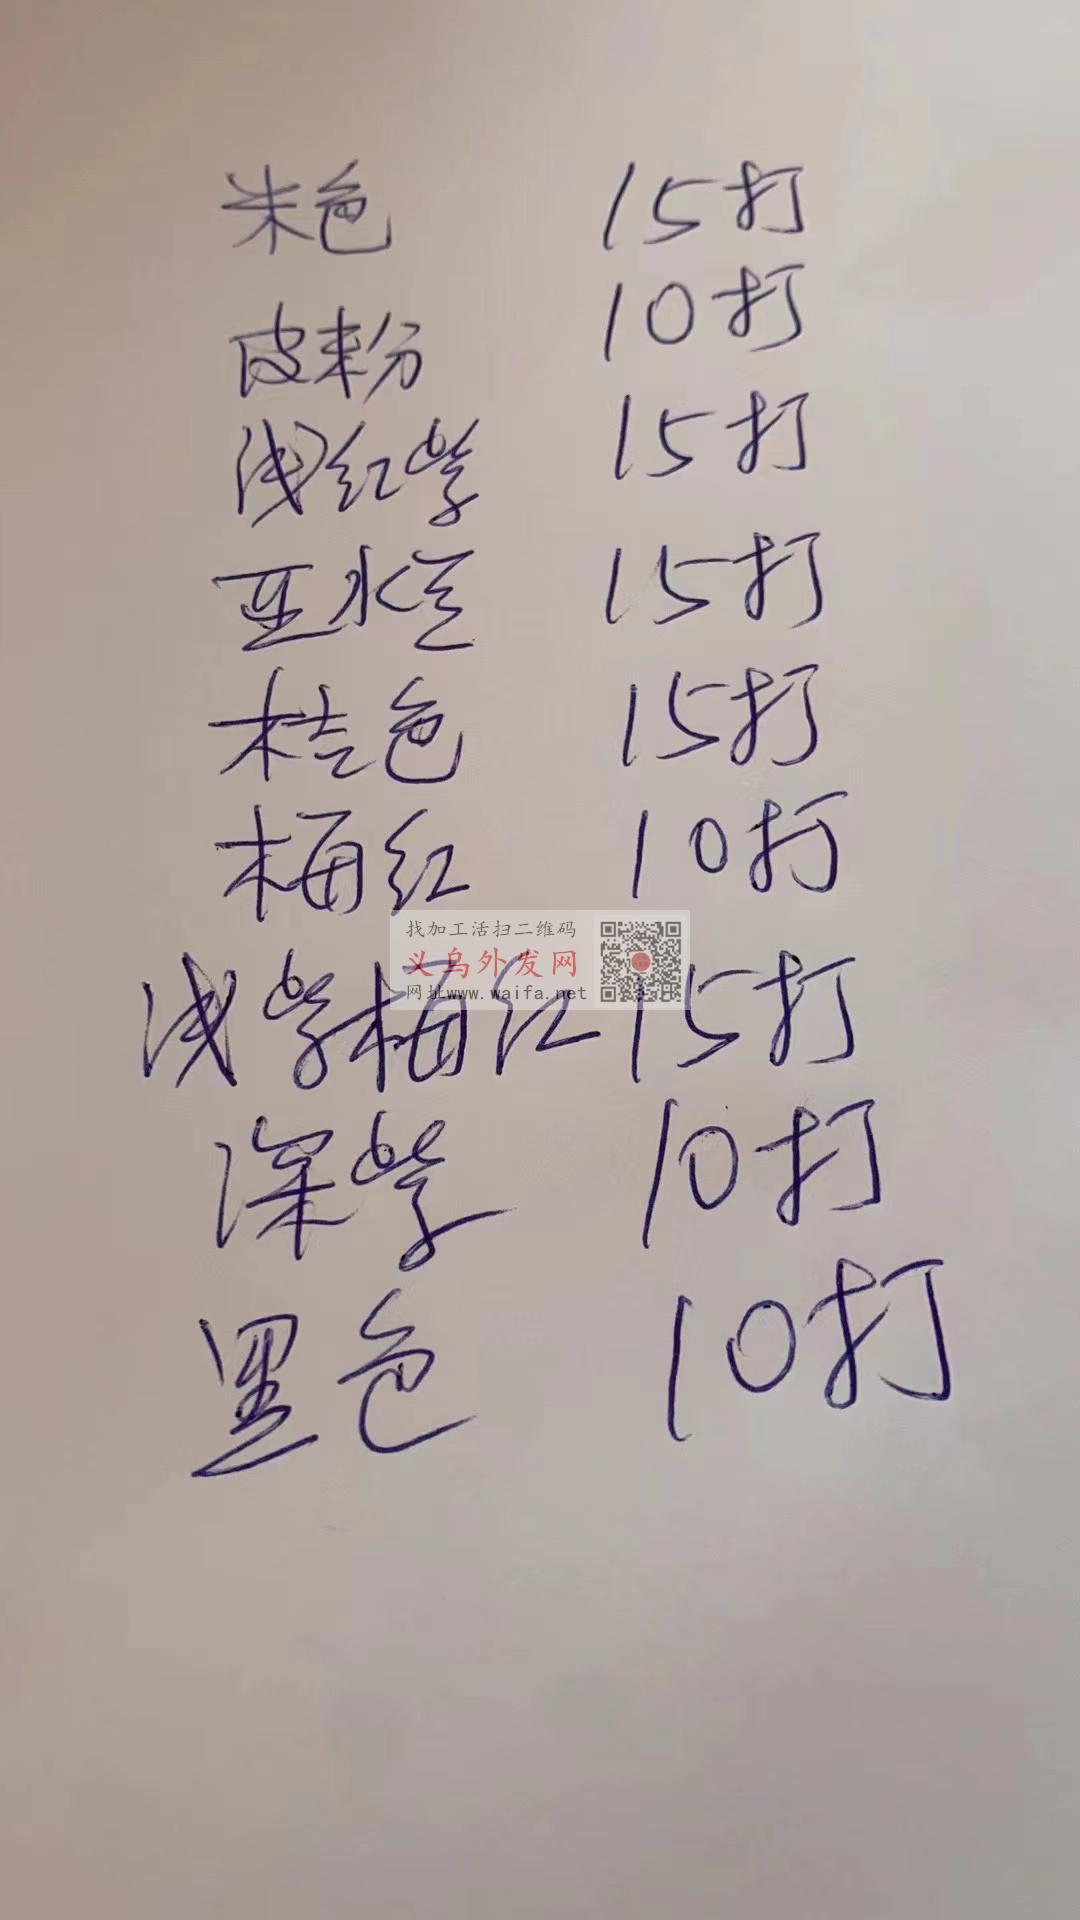 米色 15打
皮粉 10打
浅红紫 15打
亚水兰 15打
桔色 15打
梅红 10打
找加工活扫二维码
义乌外发网
网址www.waifa.net
浅紫梅红 15打
深紫 10打
黑色 10打